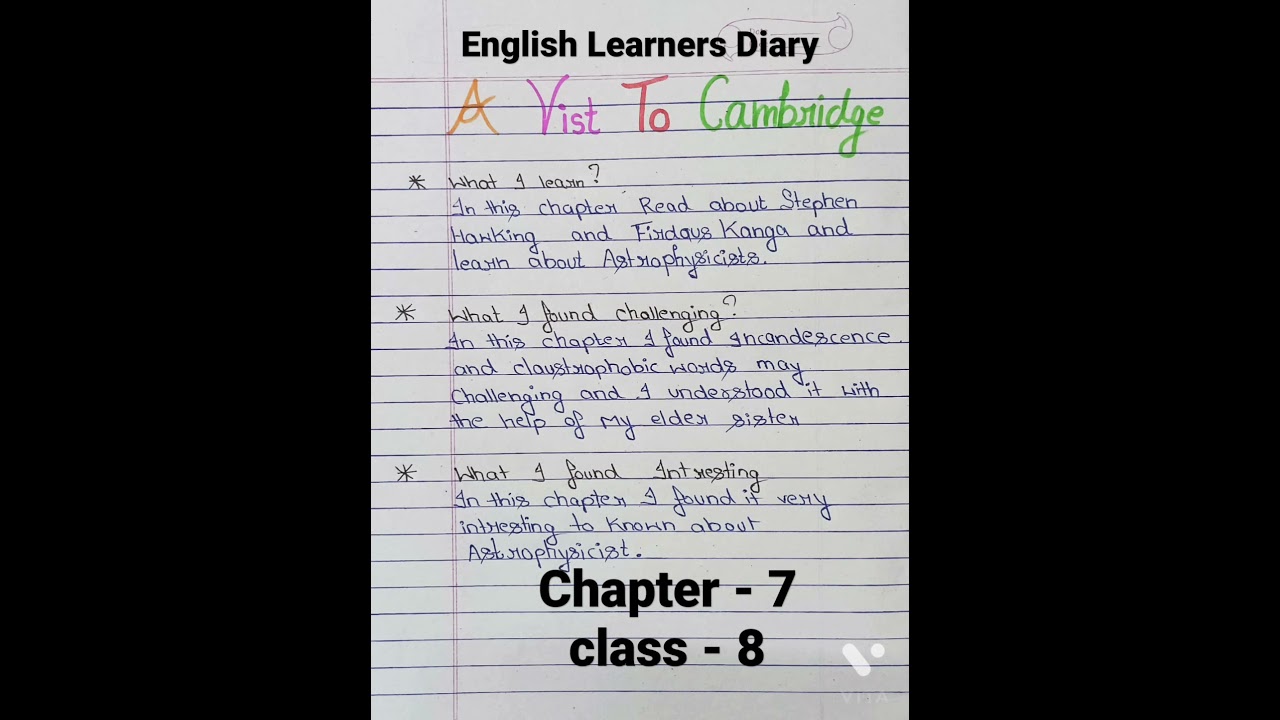 English Learners Diary
A Vist To Cambridge
* What I learn?
In this chapter Read about Stephen
Hawking and Firdaus Kanga and
learn about Astrophysicists.
* What I found challenging?
In this chapter I found Incandescence
and claustrophobic words may
Challenging and I understood it with
the help of my elder sister
* What I found Intresting
In this chapter I found it very
intresting to known about
Astrophysicist.
Chapter - 7
class - 8
VITA